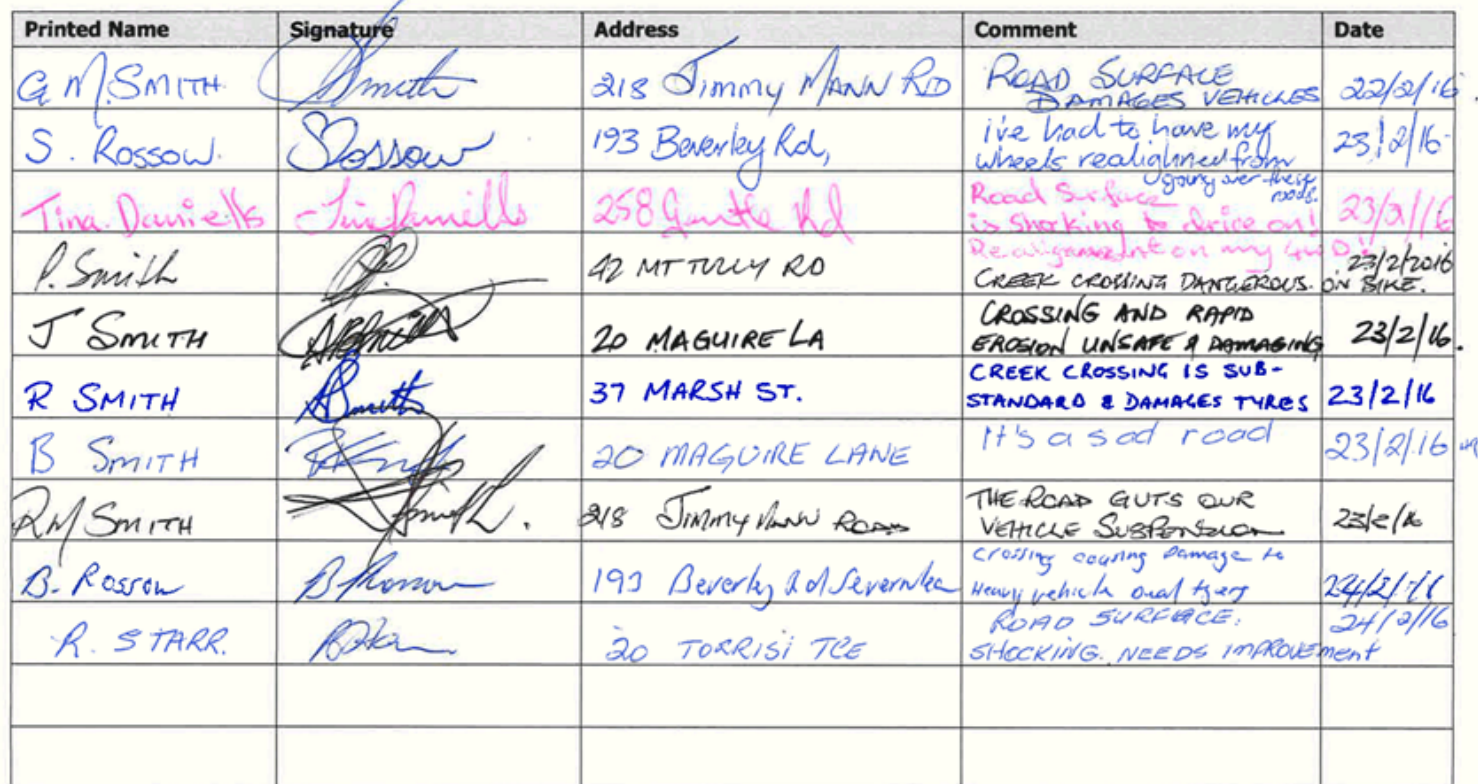 Printed Name Signature Address Comment Date
G M SMITH. Smith 218 Jimmy MANN RD ROAD SURFACE
DAMAGES VEHICLES 22/2/16.
S. Rossow. SRossow 193 Beverley Rd, i've had to have my
wheels realighned from
going over these
roads. 23/2/16
Tina Daniells Tina Daniells 258 Rd Road Surface
is shocking to drice on!
Realignment on my 4WD! 23/2/16
P. Smith 42 MT TULLY RD CREEK CROSSING DANGEROUS ON BIKE. 23/2/2016
J SMITH 20 MAGUIRE LA CROSSING AND RAPID
EROSION UNSAFE & DAMAGING 23/2/16.
R SMITH Smith 37 MARSH ST. CREEK CROSSING IS SUB-
STANDARD & DAMAGES TYRES 23/2/16
B SMITH 20 MAGUIRE LANE It's a sad road 23/2/16
RM SMITH Smith. 218 JIMMY MANN ROAD THE ROAD GUTS OUR
VEHICLE SUSPENSION 23/2/16
B. Rossow B Rossow 193 Beverley Rd Severnlea Crossing causing Damage to
Heavy vehicle dual tyers 24/2/16
R. STARR. 20 TORRISI TCE ROAD SURFACE.
SHOCKING. NEEDS IMPROVEMENT 24/2/16